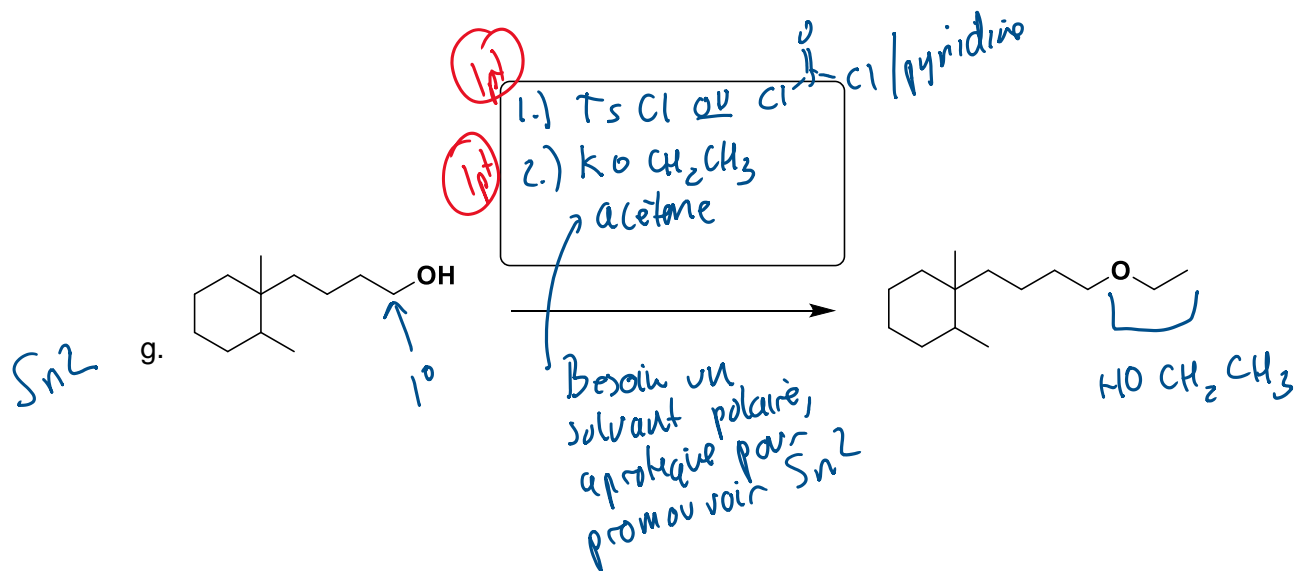 1pt
1.) TsCl ou Cl S O Cl / pyridine
1pt
2.) KO CH2CH3
acétone
OH
O
Sn2
g.
1°
Besoin un
solvant polaire,
aprotique pour
promouvoir Sn2
HO CH2 CH3